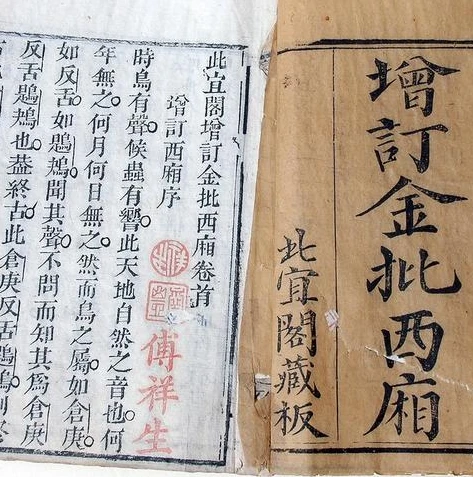 增訂金批西廂
此宜閣藏板
此宜閣增訂金批西廂卷首
增訂西廂序
傅祥生
時鳥有聲候蟲有響此天地自然之音也何
年無之何月何日無之然而鳥之屬如倉庚
如反舌如鶗鴂聞其聲不問而知其爲倉庚
反舌鶗鴂也蓋終古此倉庚反舌鶗鴂